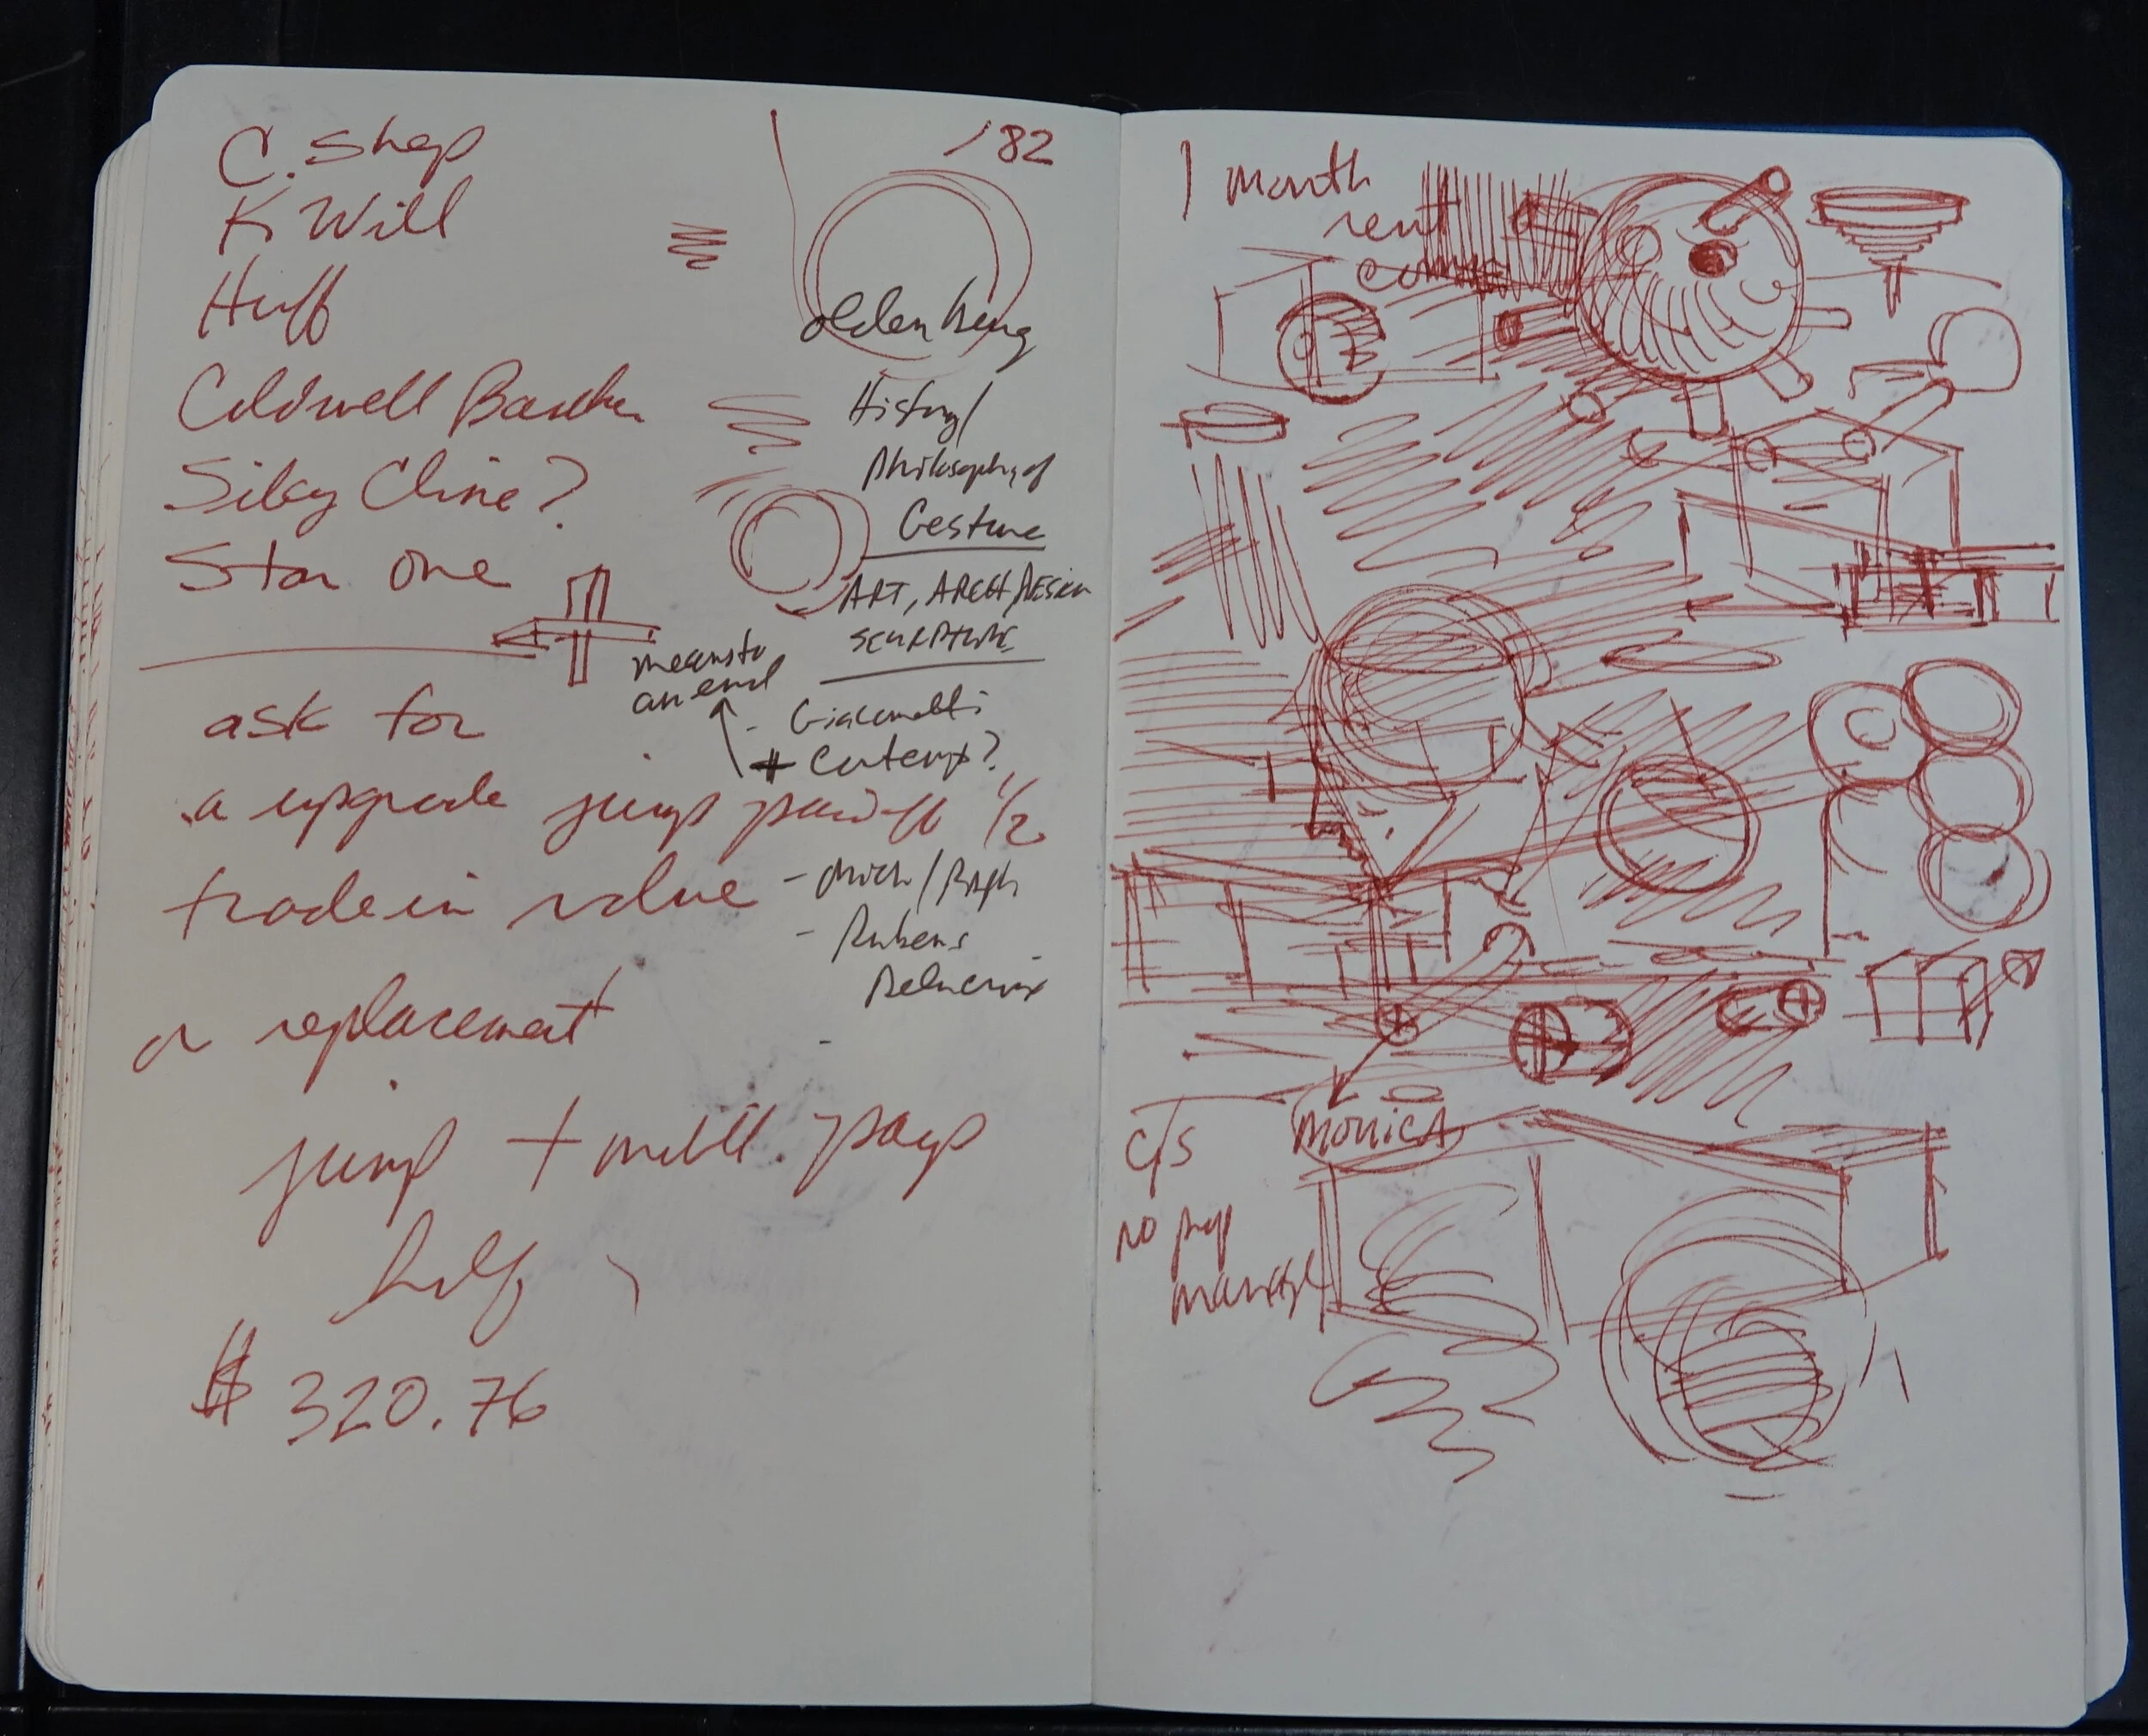 C. Shep
K Will
Huff
Coldwell Banker
Sibcy Cline?
Star one
ask for
a upgrade jump
trade in value
or replacement
jump + mill. pays
half
$ 320.76
/82
oldenburg
History/
philosophy of
Gesture
ART, ARCH/DESIGN
SCULPTURE
means to
an end
- Giacometti
+ Contemp?
1/2
- Mich/Raph
- Rubens
Delacroix
1 month
rent
MONICA
C/S
no prop